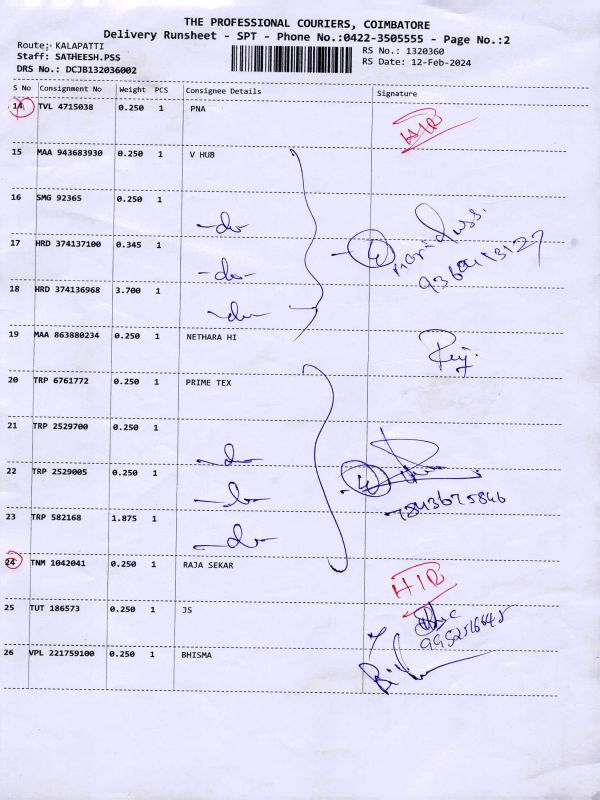 THE PROFESSIONAL COURIERS, COIMBATORE
Delivery Runsheet - SPT - Phone No.:0422-3505555 - Page No.:2
Route: KALAPATTI
Staff: SATHEESH.PSS
DRS No.: DCJB132036002
RS No.: 1320360
RS Date: 12-Feb-2024
S No Consignment No Weight PCS Consignee Details Signature
14 TVL 4715038 0.250 1 PNA
15 MAA 943683930 0.250 1 V HUB
16 SMG 92365 0.250 1 -do-
17 HRD 374137100 0.345 1 -do-
18 HRD 374136968 3.700 1 -do-
4
19 MAA 863880234 0.250 1 NETHARA HI
20 TRP 6761772 0.250 1 PRIME TEX
21 TRP 2529700 0.250 1 -do-
22 TRP 2529005 0.250 1 -do-
4
7843675846
23 TRP 582168 1.875 1 -do-
24 TNM 1042041 0.250 1 RAJA SEKAR
25 TUT 186573 0.250 1 JS
26 VPL 221759100 0.250 1 BHISMA